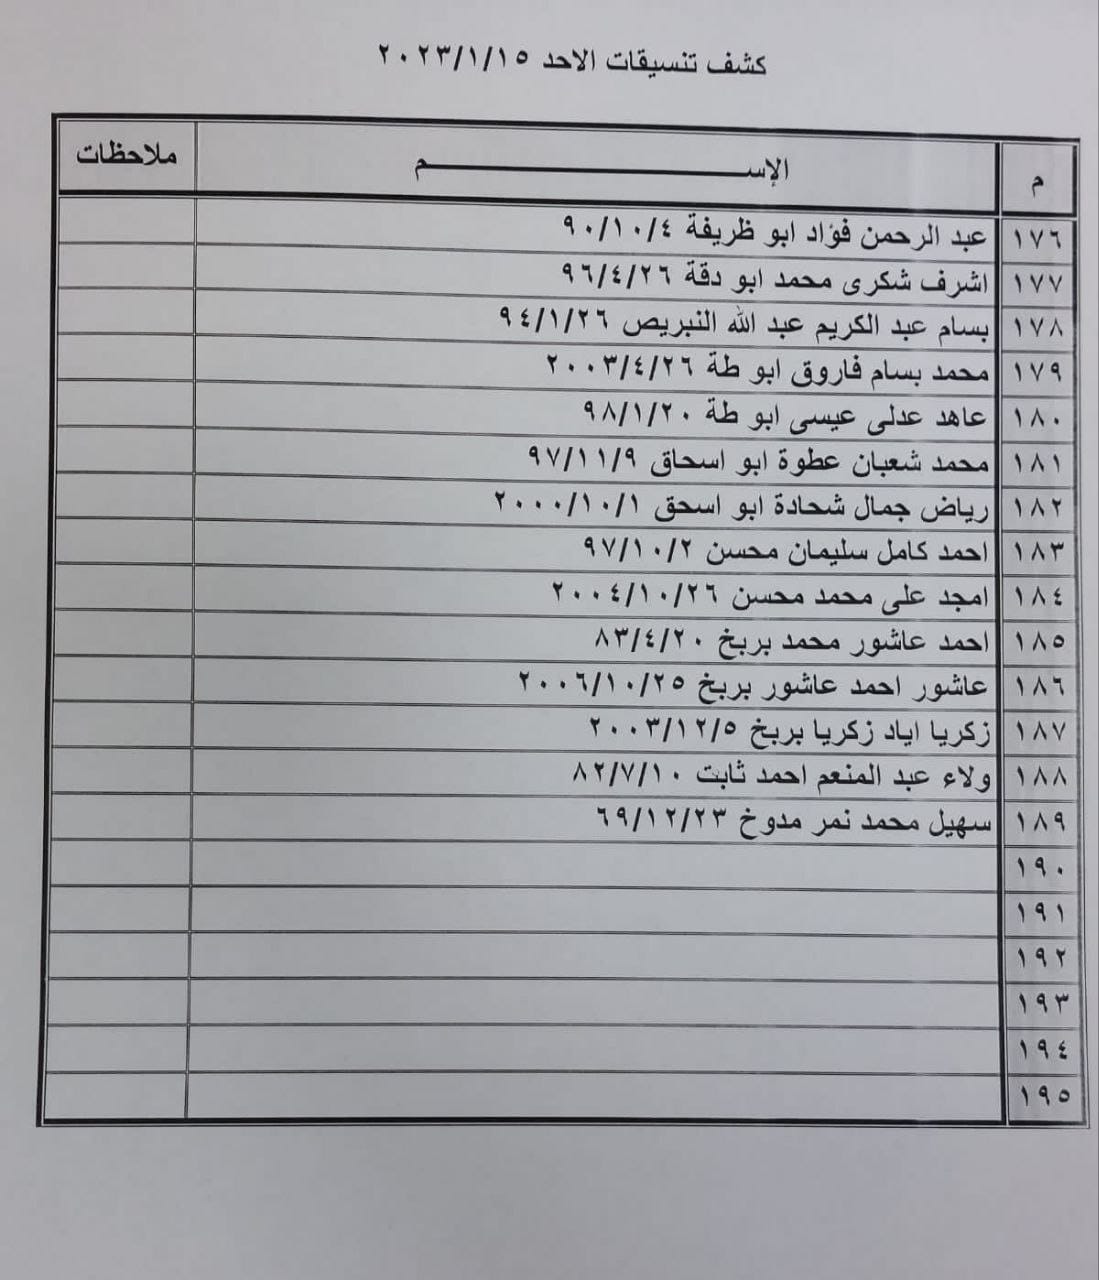 كشف تنسيقات الاحد ٢٠٢٣/١/١٥
م الإســـم ملاحظات
١٧٦ عبد الرحمن فؤاد ابو ظريفة ٩٠/١٠/٤
١٧٧ اشرف شكرى محمد ابو دقة ٩٦/٤/٢٦
١٧٨ بسام عبد الكريم عبد الله النبريص ٩٤/١/٢٦
١٧٩ محمد بسام فاروق ابو طة ٢٠٠٣/٤/٢٦
١٨٠ عاهد عدلى عيسى ابو طة ٩٨/١/٢٠
١٨١ محمد شعبان عطوة ابو اسحاق ٩٧/١١/٩
١٨٢ رياض جمال شحادة ابو اسحق ٢٠٠٠/١٠/١
١٨٣ احمد كامل سليمان محسن ٩٧/١٠/٢
١٨٤ امجد على محمد محسن ٢٠٠٤/١٠/٢٦
١٨٥ احمد عاشور محمد بربخ ٨٣/٤/٢٠
١٨٦ عاشور احمد عاشور بربخ ٢٠٠٦/١٠/٢٥
١٨٧ زكريا اياد زكريا بربخ ٢٠٠٣/١٢/٥
١٨٨ ولاء عبد المنعم احمد ثابت ٨٢/٧/١٠
١٨٩ سهيل محمد نمر مدوخ ٦٩/١٢/٢٣
١٩٠
١٩١
١٩٢
١٩٣
١٩٤
١٩٥